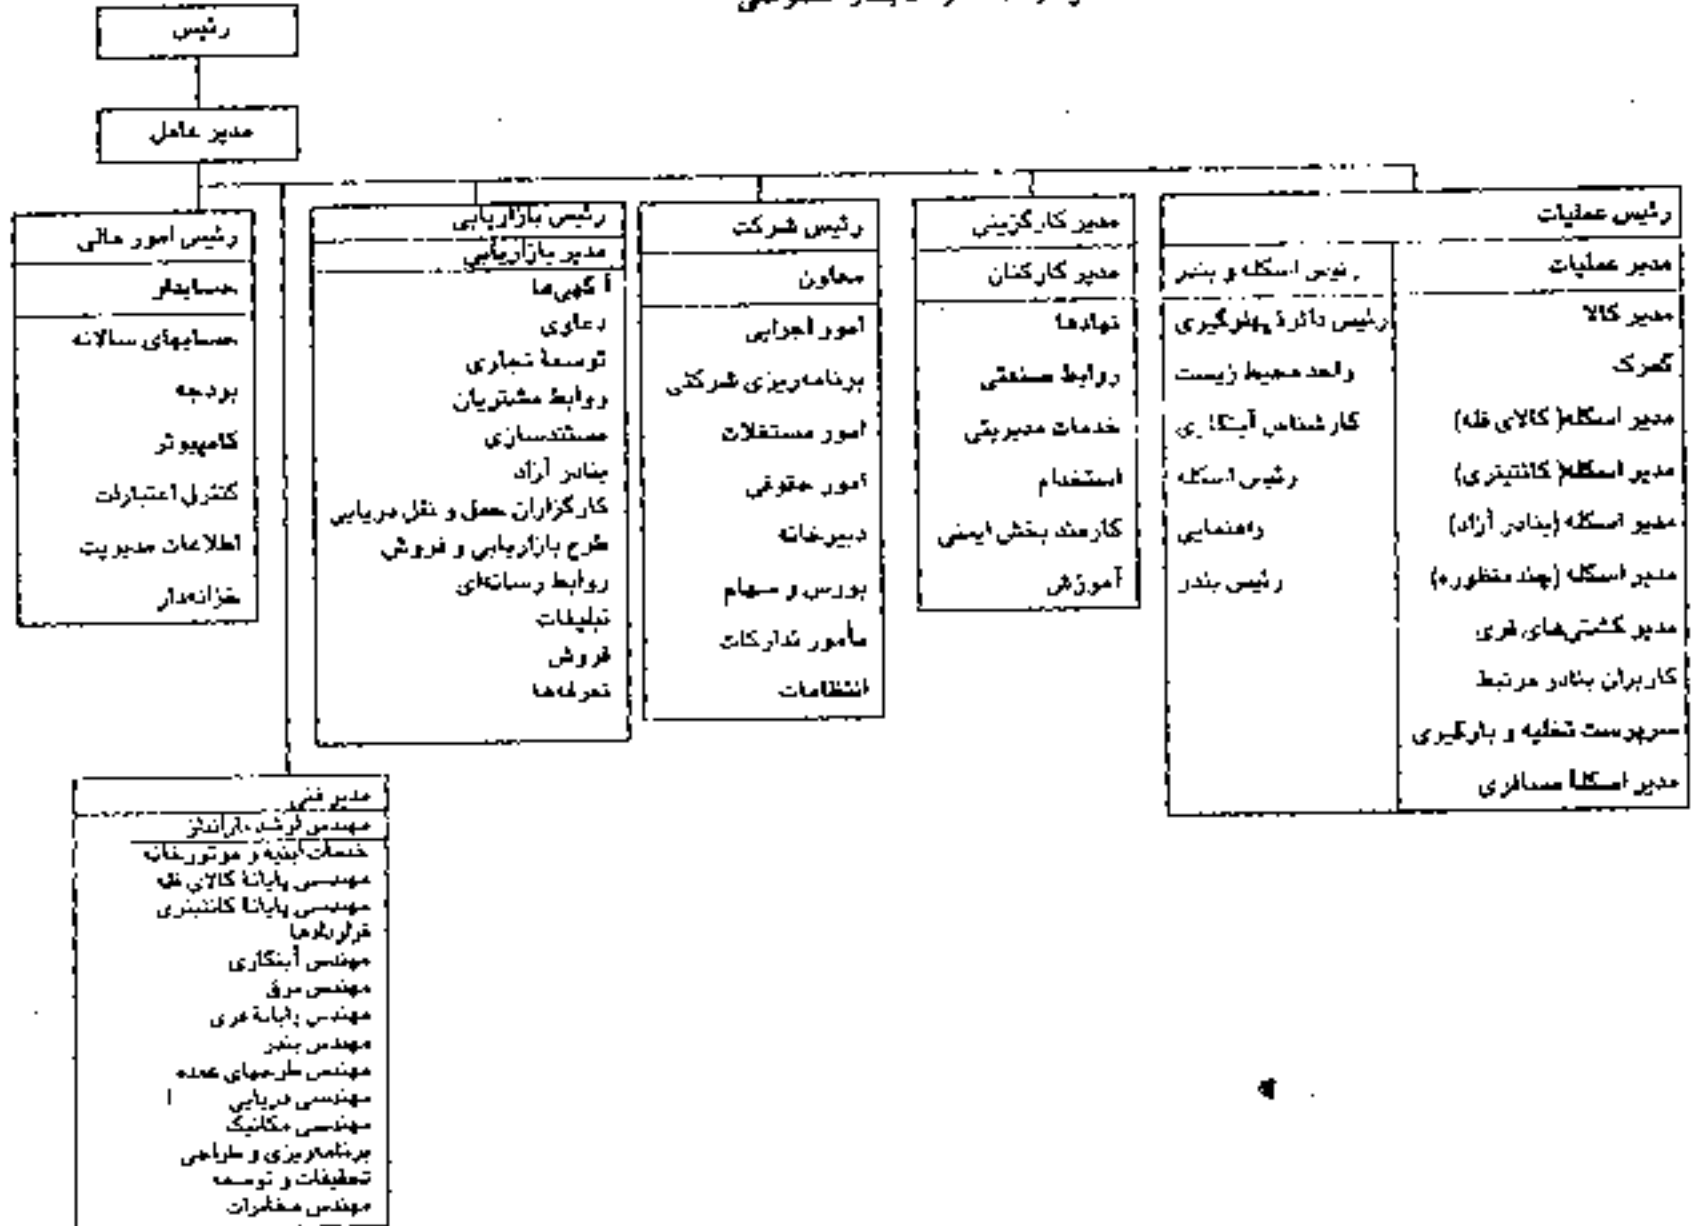 رئیس
مدیر عامل
رئیس عملیات
مدیر عملیات
مدیر کالا
گمرک
مدیر اسکله (کالای فله)
مدیر اسکله (کانتینری)
مدیر اسکله (بنادر آزاد)
مدیر اسکله (چند منظوره)
مدیر کشتی‌های فری
کاربران بنادر مرتبط
سرپرست تخلیه و بارگیری
مدیر اسکلهٔ مسافری
رئیس اسکله و بندر
رئیس دائرهٔ پهلوگیری
واحد محیط زیست
کارشناس آبنگاری
رئیس اسکله
راهنمایی
رئیس بندر
مدیر کارگزینی
مدیر کارکنان
نهادها
روابط صنعتی
خدمات مدیریتی
استخدام
کارمند بخش ایمنی
آموزش
رئیس شرکت
معاون
امور اجرایی
برنامه‌ریزی شرکتی
امور مستغلات
امور حقوقی
دبیرخانه
بورس و سهام
مأمور تدارکات
انتظامات
رئیس بازاریابی
مدیر بازاریابی
آگهی‌ها
دعاوی
توسعهٔ تجاری
روابط مشتریان
مستندسازی
بنادر آزاد
کارگزاران حمل و نقل دریایی
طرح بازاریابی و فروش
روابط رسانه‌ای
تبلیغات
فروش
تعرفه‌ها
رئیس امور مالی
حسابدار
حسابهای سالانه
بودجه
کامپیوتر
کنترل اعتبارات
اطلاعات مدیریت
خزانه‌دار
مدیر فنی
مهندس ارشد
خدمات ابنیه و موتورخانه
مهندسی پایانهٔ کالای فله
مهندسی پایانهٔ کانتینری
قراردادها
مهندس آبنگاری
مهندس برق
مهندس پایانهٔ فری
مهندس بندر
مهندس طرحهای عمده
مهندسی دریایی
مهندسی مکانیک
برنامه‌ریزی و طراحی
تحقیقات و توسعه
مهندس مخابرات